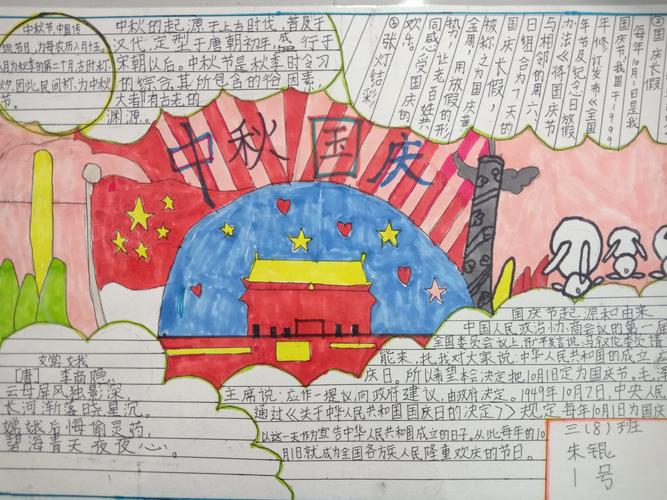 中秋节,中国传
统节日,为每农历八月十五.
八月为秋季的第二个月,古时称,
秋,因此,民间称,为中秋
节。
中秋的起源于上古时代,普及于
汉代,定型于唐朝初年,盛行于
宋朝以后。中秋节是秋季时令习
的综合,其所包含的俗因素,
大都有古老的
渊源。
②国庆长假
每年10月1日是我
国庆节,我国于1999
年修订发布《全国
年节及纪念日放假
办法》将国庆节
与相邻的周六、
日组合为7天的
国庆长假,
被称之为国庆黄
金周,用放假的形
势,让老百姓共
同感受国庆的
欢恋。
张灯结彩
中秋国庆
文学文找
[唐] 李商隐.
云母屏风独影深,
长河渐落晓星沉。
嫦娥后悔偷灵药,
碧海青天夜夜心。
国庆节起源和由来
中国人民政治协商会议的第一
全国委员会议上,许广平发言说,马叙伦委员请
能来,托我对大家说:中华人民共和国的成立
庆日。所以希望本会决定把10月1日定为国庆节,毛泽
主席说:应作一提议,向政府建议,由政府决定。1949年10月2日,中央人民
通过《关于中华人民共和国国庆日的决定了》规定每年10月1日为国庆
以这一天作为宣告中华人民共和国成立的日子。从此,每年的10
月1日就成为全国各方族人民隆重欢庆的节日。
三(8)班
朱锟
1号